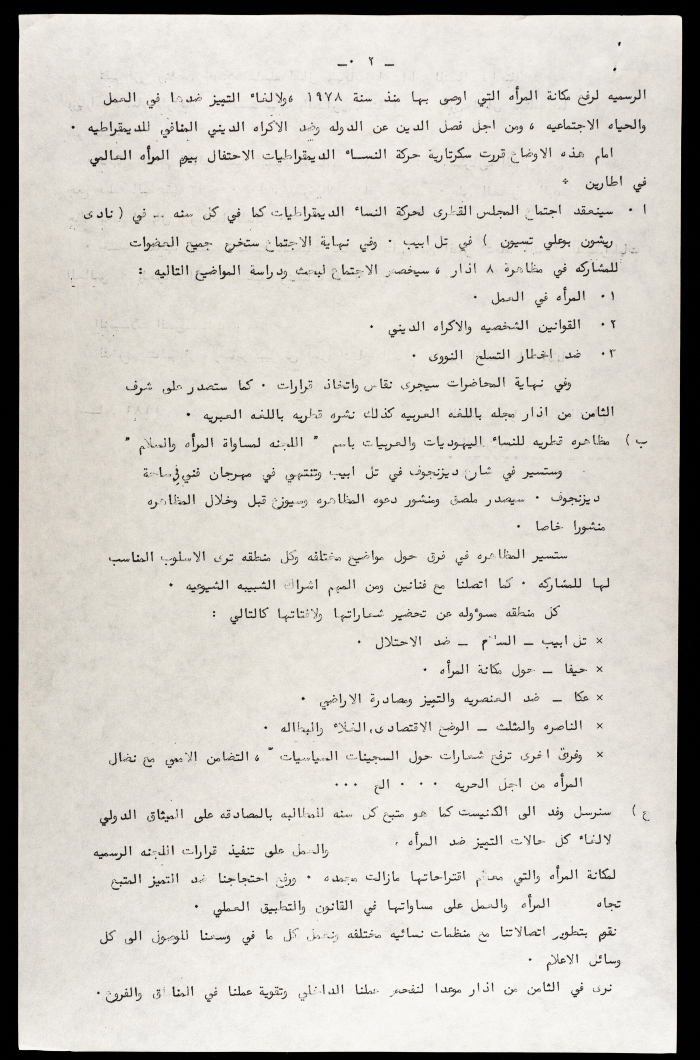 ـ ٢ ٠ـ
الرسميه لرفع مكانة المرأه التي اوصى بها منذ سنة ١٩٧٨ ، ولالغاء التميز ضدها في العمل
والحياه الاجتماعيه ، ومن اجل فصل الدين عن الدوله وضد الاكراه الديني المنافي للديمقراطيه ٠
امام هذه الاوضاع قررت سكرتارية حركة النساء الديمقراطيات الاحتفال بيوم المرأه العالمي
في اطارين ÷
ا ٠ سينعقد اجتماع المجلس القطرى لحركة النساء الديمقراطيات كما في كل سنه ـ في ( نادى
ريشون بوعلي تسيون ) في تل ابيب ٠ وفي نهاية الاجتماع ستخرج جميع العضوات
للمشاركه في مظاهرة ٨ اذار ، سيخصص الاجتماع لبحث ودراسة المواضيع التاليه :
١ ٠ المرأه في العمل ٠
٢ ٠ القوانين الشخصيه والاكراه الديني ٠
٣ ٠ ضد اخطار التسلح النووى ٠
وفي نهاية المحاضرات سيجرى نقاش واتخاذ قرارات ٠ كما ستصدر على شرف
الثامن من اذار مجله باللغه العربيه كذلك نشره قطريه باللغه العبريه ٠
ب ) مظاهره قطريه للنساء اليهوديات والعربيات باسم " اللجنه لمساواة المرأه والسلام "
وستسير في شارع ديزنجوف في تل ابيب وتنتهي في مهرجان فني في ساحة
ديزنجوف ٠ سيصدر ملصق ومنشور دعوه المظاهره وسيوزع قبل وخلال المظاهره
منشورا خاصا ٠
ستسير المظاهره في فرق حول مواضيع مختلفه وكل منطقه ترى الاسلوب المناسب
لها للمشاركه ٠ كما اتصلنا مع فنانين ومن المهم اشراك الشبيبه الشيوعيه ٠
كل منطقه مسؤوله عن تحضير شعاراتها ولافتاتها كالتالي :
× تل ابيب ـ السلام ـ ضد الاحتلال ٠
× حيفا ـ حول مكانة المرأه ٠
× عكا ـ ضد العنصريه والتميز ومصادرة الاراضي ٠
× الناصره والمثلث ـ الوضع الاقتصادى، الغلاء والبطاله ٠
× وفرق اخرى ترفع شعارات حول السجينات السياسيات " ، التضامن الاممي مع نضال
المرأه من اجل الحريه ٠ ٠ ٠ الخ ٠٠٠
ج ) سنرسل وفد الى الكنيست كما هو متبع كل سنه للمطالبه بالمصادقه على الميثاق الدولي
لالغاء كل حالات التميز ضد المرأه ، والعمل على تنفيذ قرارات اللجنه الرسميه
لمكانة المرأه والتي معظم اقتراحاتها مازالت مجمده ٠ ورفع احتجاجنا ضد التميز المتبع
تجاه المرأه والعمل على مساواتها في القانون والتطبيق العملي ٠
نقوم بتطوير اتصالاتنا مع منظمات نسائيه مختلفه ونعمل كل ما في وسعنا للوصول الى كل
وسائل الاعلام ٠
نرى في الثامن من اذار موعدا لنفحص عملنا الداخلي وتقوية عملنا في المناطق والفروع ٠